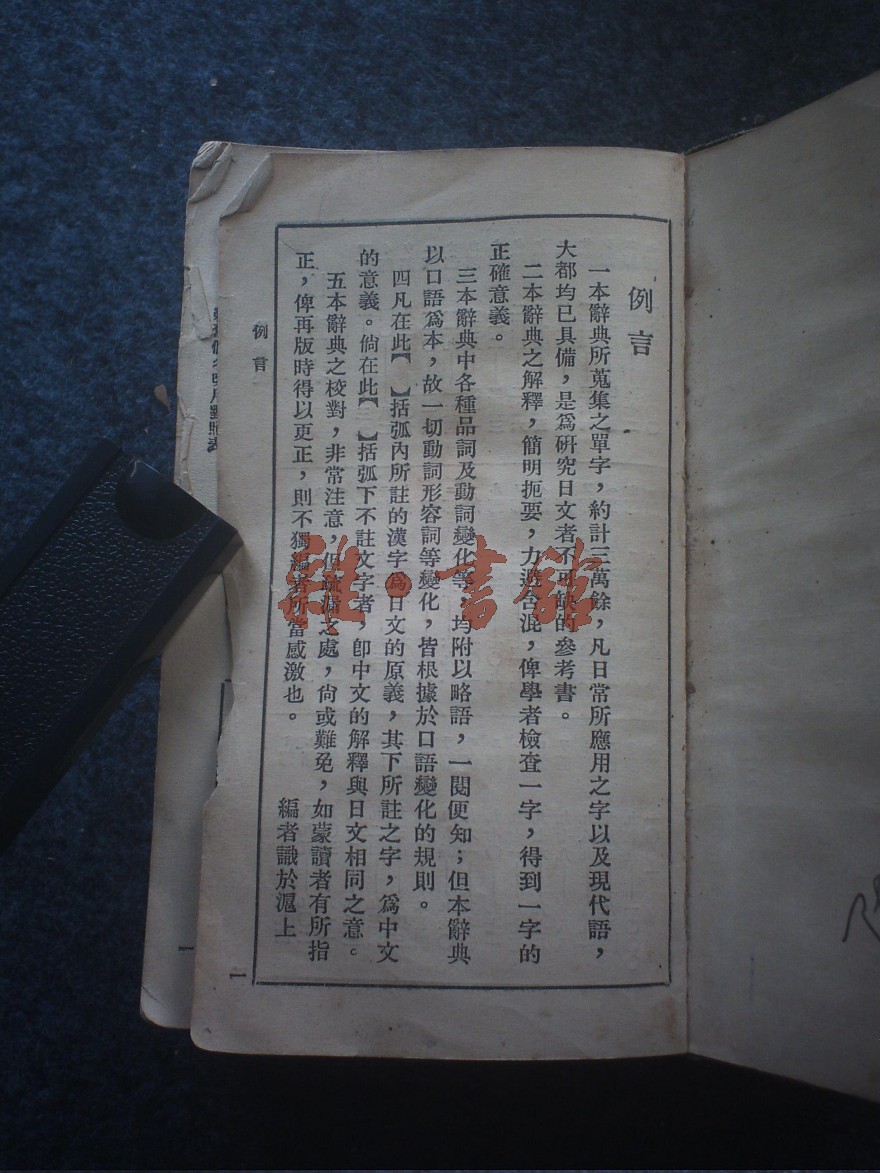 例言
一本辭典所蒐集之單字，約計三萬餘，凡日常所應用之字以及現代語，
大都均已具備，是爲研究日文者不可缺的參考書。
二本辭典之解釋，簡明扼要，力避含混，俾學者檢查一字，得到一字的
正確意義。
三本辭典中各種品詞及動詞變化等，均附以略語，一閱便知；但本辭典
以口語爲本，故一切動詞形容詞等變化，皆根據於口語變化的規則。
四凡在此【　】括弧內所註的漢字爲日文的原義，其下所註之字，爲中文
的意義。倘在此【　】括弧下不註文字者，卽中文的解釋與日文相同之意。
五本辭典之校對，非常注意，但疏漏之處，尙或難免，如蒙讀者有所指
正，俾再版時得以更正，則不獨編者所當感激也。
編者識於滬上
例言
一
雜·書館